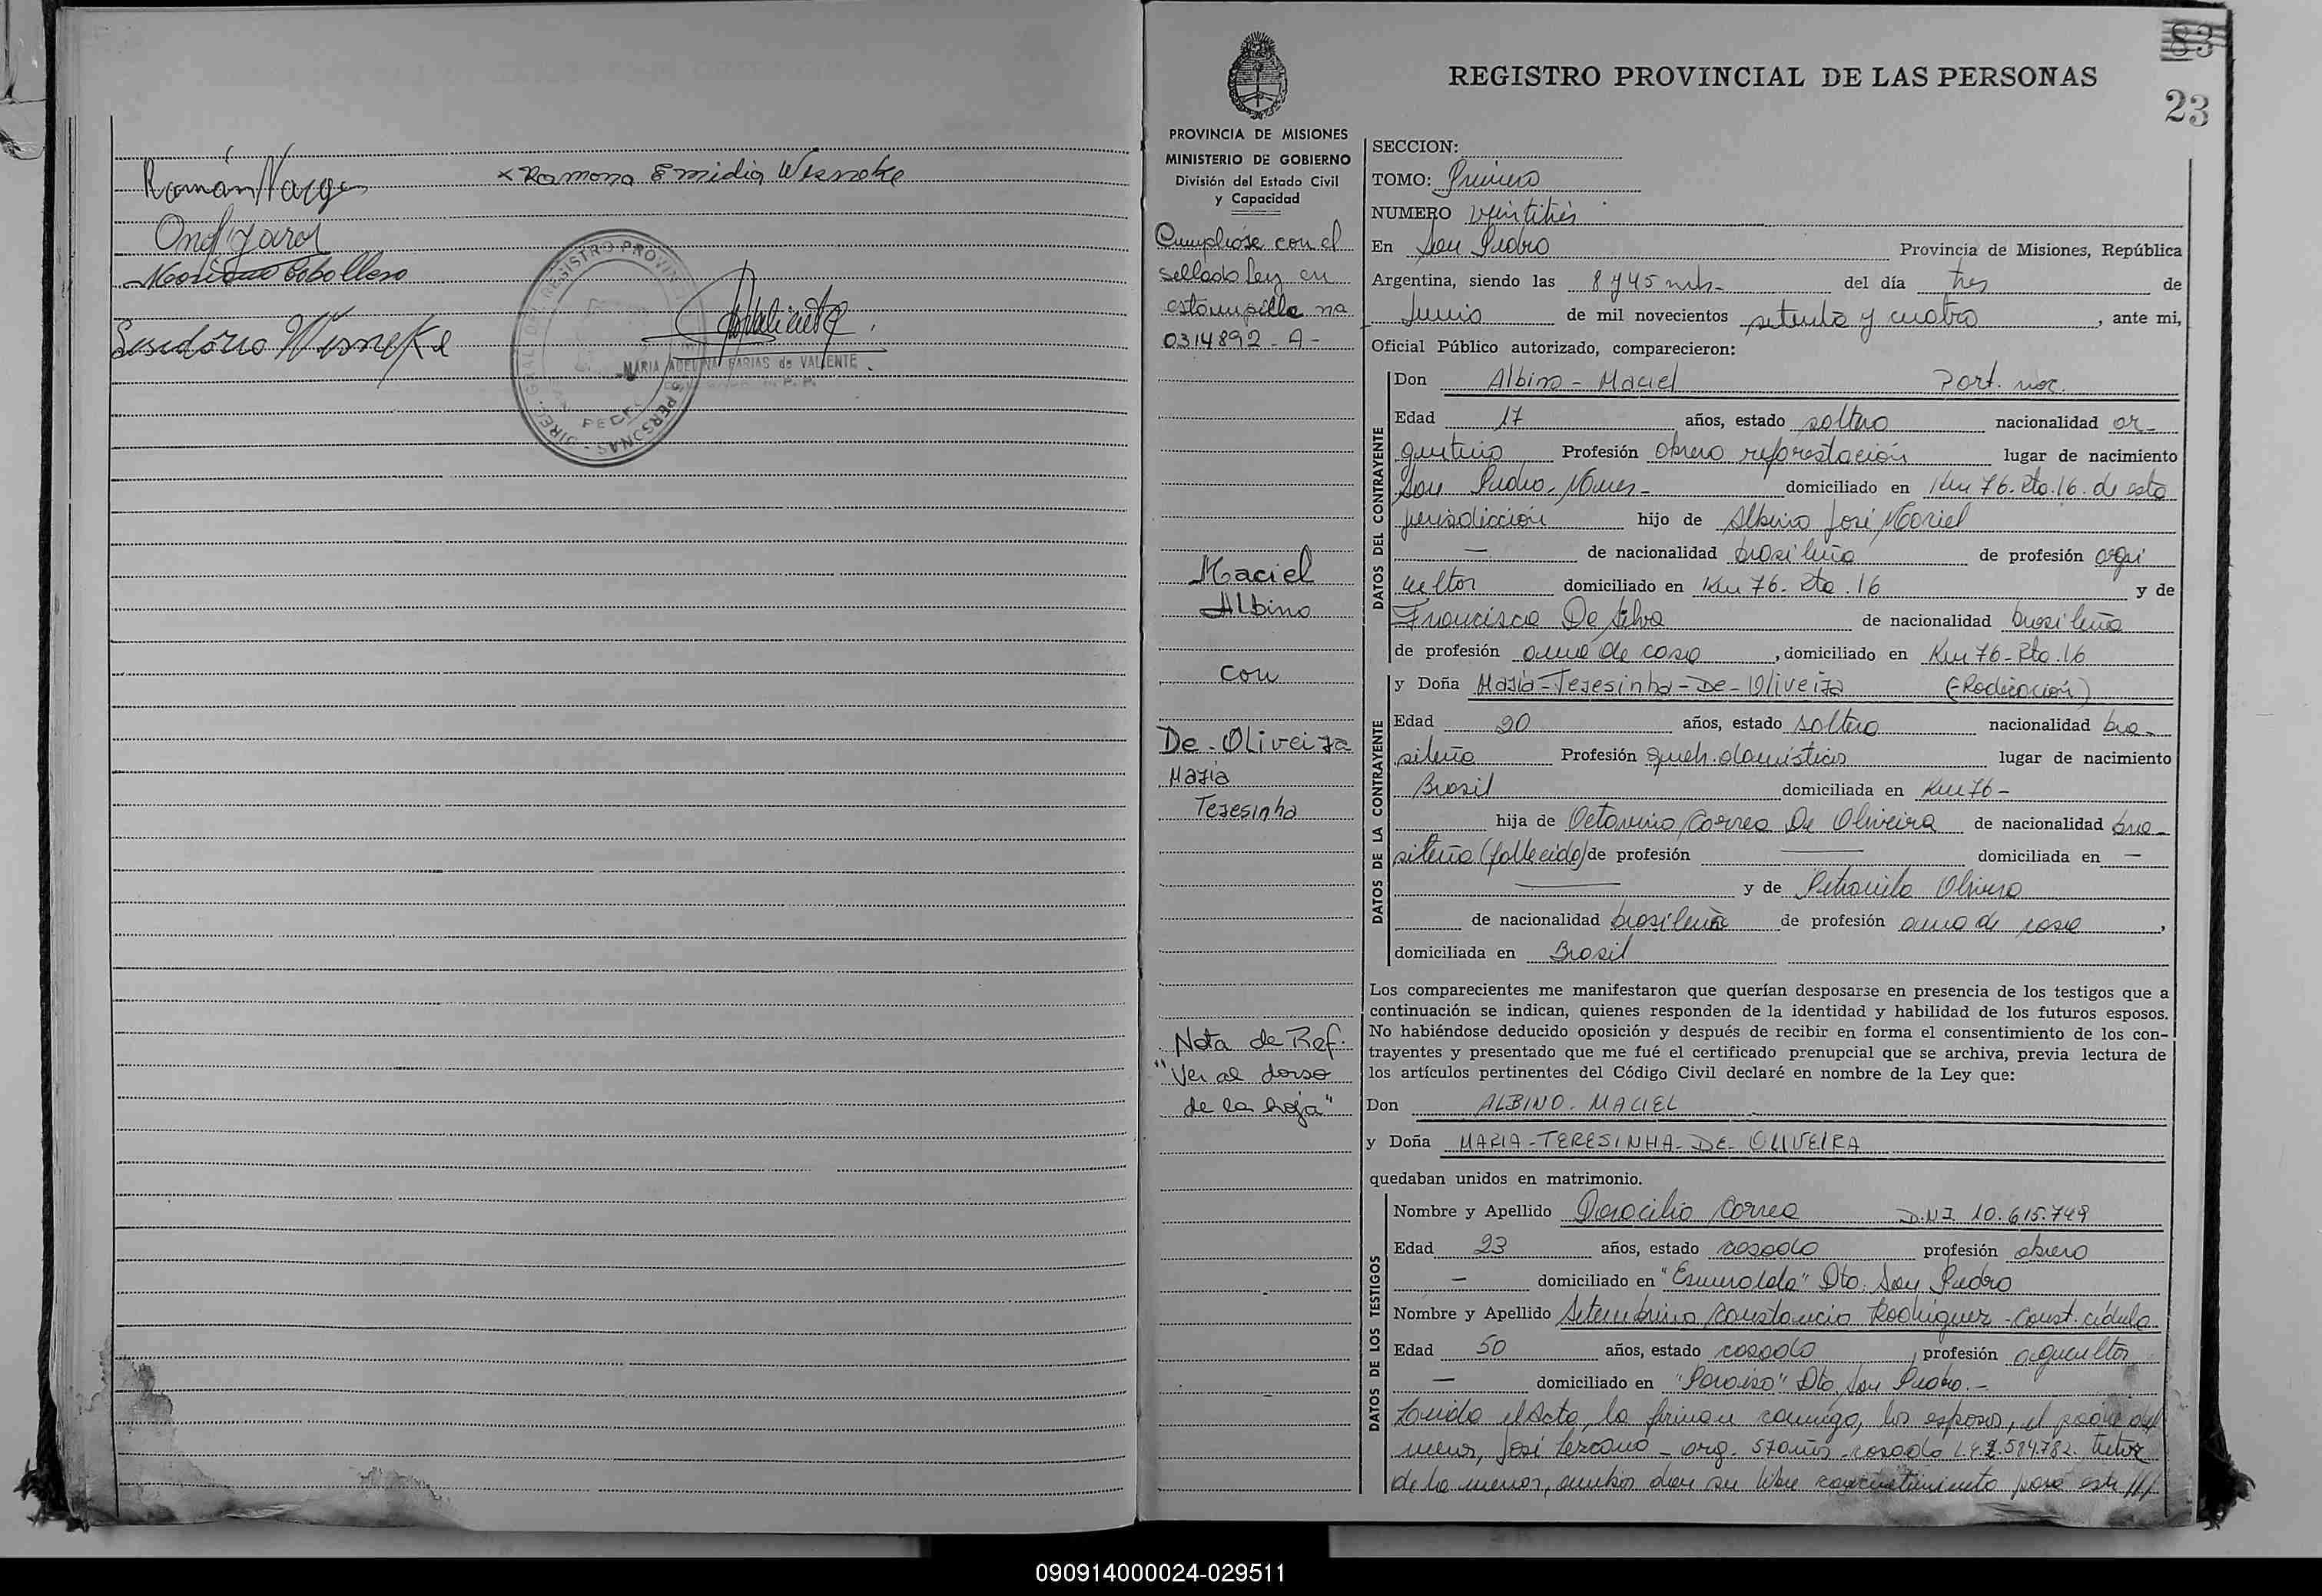 Román Vargas
× Ramona Emidia Wisneke
Wisneke
DIREC. GRAL. DEL REGISTRO PROVINCIAL DE PERSONAS
MARIA ADELINA FARIAS de VALIENTE
83
23
REGISTRO PROVINCIAL DE LAS PERSONAS
PROVINCIA DE MISIONES
MINISTERIO DE GOBIERNO
División del Estado Civil
y Capacidad
Cumpliose con el
sellado Ley en
estampilla na
0314892-A-
Maciel
Albino
con
De-Oliveira
Maria
Teresinha
Nota de Ref.
"Ver al dorso
de la hoja"
SECCION:
TOMO: Primero
NUMERO veintitrés
En San Pedro Provincia de Misiones, República
Argentina, siendo las 8 y 45 mts- del día tres de
Junio de mil novecientos setenta y cuatro, ante mi,
Oficial Público autorizado, comparecieron:
DATOS DEL CONTRAYENTE
Don Albino-Maciel Part. nac.
Edad 17 años, estado soltero nacionalidad ar-
gentino Profesión obrero reforestación lugar de nacimiento
San Pedro-Mnes- domiciliado en Km 76. Rta.16. de esta
jurisdicción hijo de Albino José Maciel
— de nacionalidad brasileña de profesión agri
cultor domiciliado en Km 76- Rta.16 y de
Francisca Da Silva de nacionalidad brasileña
de profesión ama de casa, domiciliado en Km 76-Rta.16
DATOS DE LA CONTRAYENTE
y Doña Maria-Teresinha-De-Oliveira (Radicación)
Edad 20 años, estado soltera nacionalidad bra-
sileña Profesión queh. domésticos lugar de nacimiento
Brasil domiciliada en Km 76-
hija de Octavino Correa De Oliveira de nacionalidad bra-
sileña (fallecido) de profesión — domiciliada en —
— y de Petronila Olivera
de nacionalidad brasileña de profesión ama de casa,
domiciliada en Brasil
Los comparecientes me manifestaron que querían desposarse en presencia de los testigos que a
continuación se indican, quienes responden de la identidad y habilidad de los futuros esposos.
No habiéndose deducido oposición y después de recibir en forma el consentimiento de los con-
trayentes y presentado que me fué el certificado prenupcial que se archiva, previa lectura de
los artículos pertinentes del Código Civil declaré en nombre de la Ley que:
Don ALBINO-MACIEL
y Doña MARIA-TERESINHA-DE-OLIVEIRA
quedaban unidos en matrimonio.
DATOS DE LOS TESTIGOS
Nombre y Apellido Doracilio Correa D.N.I 10.615.749
Edad 23 años, estado casado profesión obrero
— domiciliado en "Esmeralda" Dto. San Pedro
Nombre y Apellido Setembrino Constancio Rodriguez-Const. cédula
Edad 50 años, estado casado, profesión agricultor
— domiciliado en "Paraiso" Dto. San Pedro.-
Leida el Acta, la firman conmigo, los esposos, el padre del
menor, José Lezcano-arg. 57 años-casado L.E. 584.782. tutor
de la menor, ambos dan su libre consentimiento para este ///
090914000024-029511